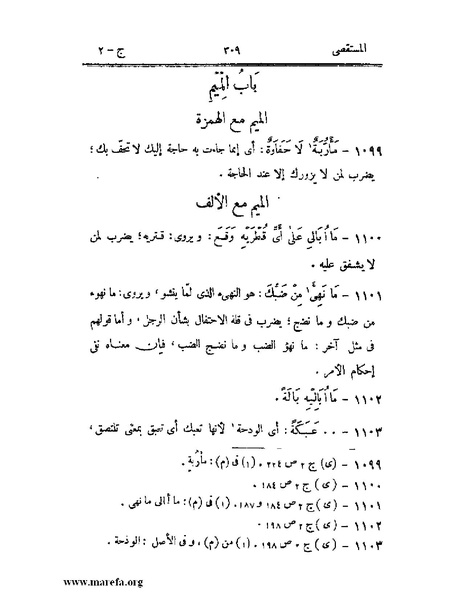 المستقصى ٣٠٩ ج – ٢
بَابُ الْمِيْمِ
الميم مع الهمزة
١٠٩٩ – مَأْرُبَةٌ١ لَا حَفَاوَةٌ : أى إنما جاءت به حاجة إليك لا تحفّ بك ؛
يضرب لمن لا يزورك إلا عند الحاجة .
الميم مع الألف
١١٠٠ – مَا أُبَالِى عَلىٰ أَىِّ قُطْرَيْهِ وَقَعَ : و يروى : قتريه ؛ يضرب لمن
لا يشفق عليه .
١١٠١ – مَا نَهِىَ١ مِنْ ضَبِّكَ : هو النهىء الذى لمّا ينشو ، و يروى : ما نهوء
من ضبك و ما نضج ؛ يضرب فى قلة الاحتفال بشأن الرجل ، و أما قولهم
فى مثل آخر : ما نهؤ الضب و ما نضج الضب ، فإن معناه نفى
إحكام الأمر .
١١٠٢ – مَا أُبَالِيْهِ بَالَةً .
١١٠٣ – .. عَبَكَةً : أى الودحة١ لأنها تعبك أى تعبق بمعنى تلتصق ،
١٠٩٩ – (ى) ج ٢ ص ٢٢٤ . (١) فى (م) : مأربة .
١١٠٠ – (ى) ج ٢ ص ١٨٤ .
١١٠١ – (ى) ج ٢ ص ١٨٤ و ١٨٧ . (١) فى (م) : ما أبالى ما نهى .
١١٠٢ – (ى) ج ٢ ص ١٩٨ .
١١٠٣ – (ى) ج ٢ ص ١٩٨ . (١) من (م) ، و فى الأصل : الوذحة .
www.marefa.org